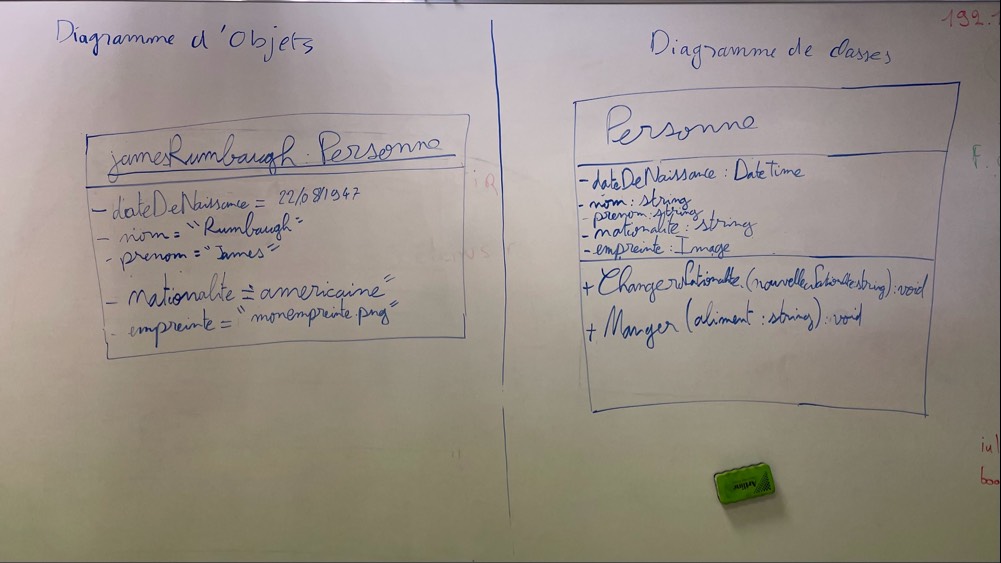 Diagramme d'Objets
jamesRumbaugh : Personne
- dateDeNaissance = 22/08/1947
- nom = "Rumbaugh"
- prenom = "James"
- nationalite = "americaine"
- empreinte = "monempreinte.png"
Diagramme de classes
Personne
- dateDeNaissance : DateTime
- nom : string
- prenom : string
- nationalite : string
- empreinte : Image
+ ChangerNationalite (nouvelleNationalite:string) : void
+ Manger (aliment : string) : void
192.
F.